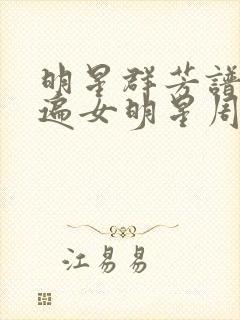 明星群芳譜
遍女明星周
江易易